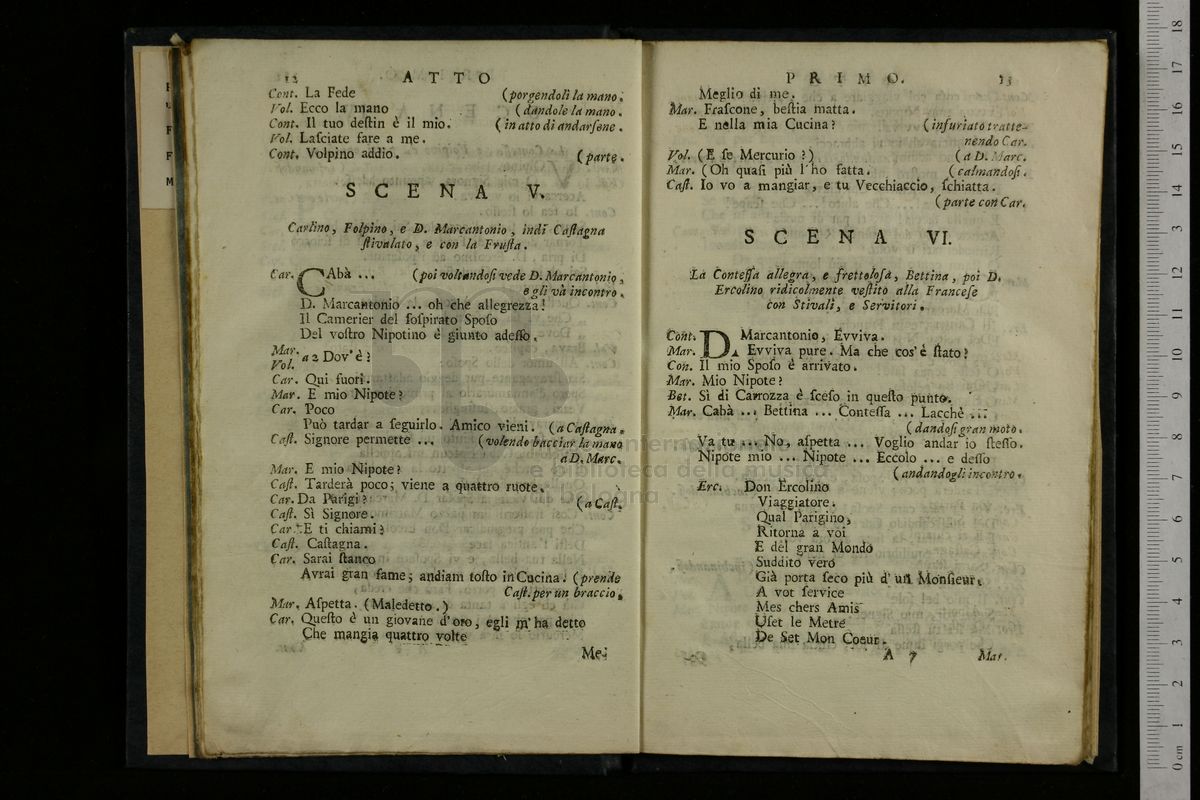 12 ATTO
Cont. La Fede (porgendoli la mano.
Vol. Ecco la mano (dandole la mano.
Cont. Il tuo deſtin è il mio. (in atto di andarſene.
Vol. Laſciate fare a me.
Cont. Volpino addio. (parte.
SCENA V.
Carlino, Folpino, e D. Marcantonio, indi Caſtagna
ſtivalato, e con la Fruſta.
Car. CAbà ... (poi voltandoſi vede D. Marcantonio,
e gli và incontro.
D. Marcantonio ... oh che allegrezza!
Il Camerier del ſoſpirato Spoſo
Del voſtro Nipotino è giunto adeſſo.
Mar.
Vol. a 2 Dov'è?
Car. Qui fuori.
Mar. E mio Nipote?
Car. Poco
Può tardar a ſeguirlo. Amico vieni. (a Caſtagna.
Caſt. Signore permette ... (volendo bacciar la mano
a D. Marc.
Mar. E mio Nipote?
Caſt. Tarderà poco; viene a quattro ruote.
Car. Da Parigi? (a Caſt.
Caſt. Sì Signore.
Car. E ti chiami?
Caſt. Caſtagna.
Car. Sarai ſtanco
Avrai gran fame; andiam toſto in Cucina. (prende
Caſt. per un braccio.
Mar. Aſpetta. (Maledetto.)
Car. Queſto è un giovane d'oro, egli m'ha detto
Che mangia quattro volte
Me-
PRIMO. 13
Meglio di me.
Mar. Fraſcone, beſtia matta.
E nella mia Cucina? (infuriato tratte-
nendo Car.
Vol. (E ſe Mercurio?) (a D. Marc.
Mar. (Oh quaſi più l'ho fatta. (calmandoſi.
Caſt. Io vo a mangiar, e tu Vecchiaccio, ſchiatta.
(parte con Car.
SCENA VI.
La Conteſſa allegra, e frettoloſa, Bettina, poi D.
Ercolino ridicolmente veſtito alla Franceſe
con Stivali, e Servitori.
Cont. D. Marcantonio, Evviva.
Mar. Evviva pure. Ma che cos'è ſtato?
Con. Il mio Spoſo è arrivato.
Mar. Mio Nipote?
Bet. Sì di Carrozza è ſceſo in queſto punto.
Mar. Cabà ... Bettina ... Conteſſa ... Lacchè ...
(dandoſi gran moto.
Va tu ... No, aſpetta ... Voglio andar io ſteſſo.
Nipote mio ... Nipote ... Eccolo ... e deſſo
(andandogli incontro.
Erc. Don Ercolino
Viaggiatore.
Qual Parigino,
Ritorna a voi
E del gran Mondo
Suddito vero
Già porta ſeco più d'un Monſieur.
A vot ſervice
Mes chers Amis
Uſet le Metre
De Set Mon Coeur.
A 7 Mar.